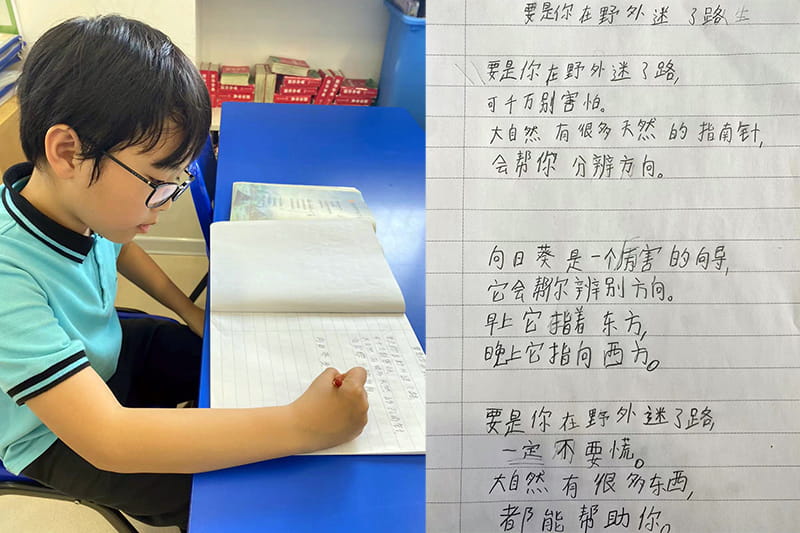 要是你在野外迷了路
要是你在野外迷了路,
可千万别害怕。
大自然有很多天然的指南针,
会帮你分辨方向。
向日葵是一个厉害的向导,
它会帮你辨别方向。
早上它指着东方,
晚上它指向西方。
要是你在野外迷了路,
一定不要慌。
大自然有很多东西,
都能帮助你。